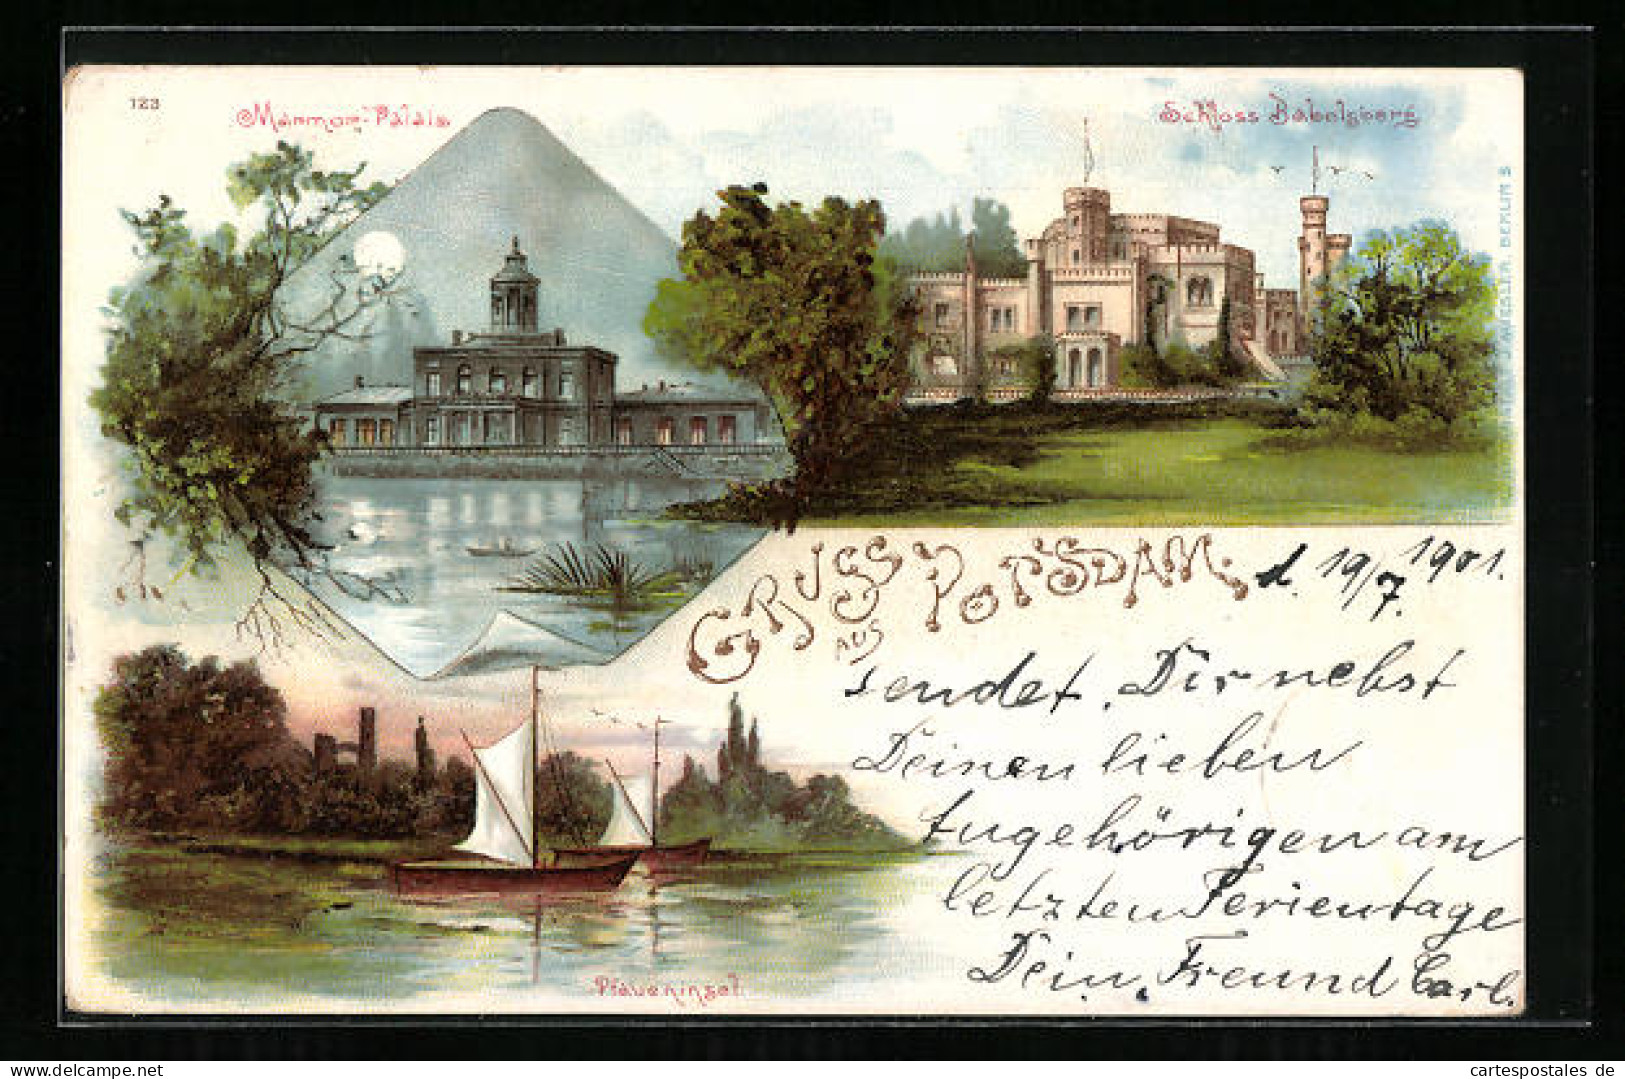 123
Marmor-Palais
Schloss Babelsberg
GRUSS AUS POTSDAM.
d. 19/7. 1901.
sendet Dir nebst
Deinen lieben
Angehörigen am
letzten Ferientage
Dein Freund Carl.
Pfaueninsel
BERLIN S
www.cartespostales.eu
cartespostales de